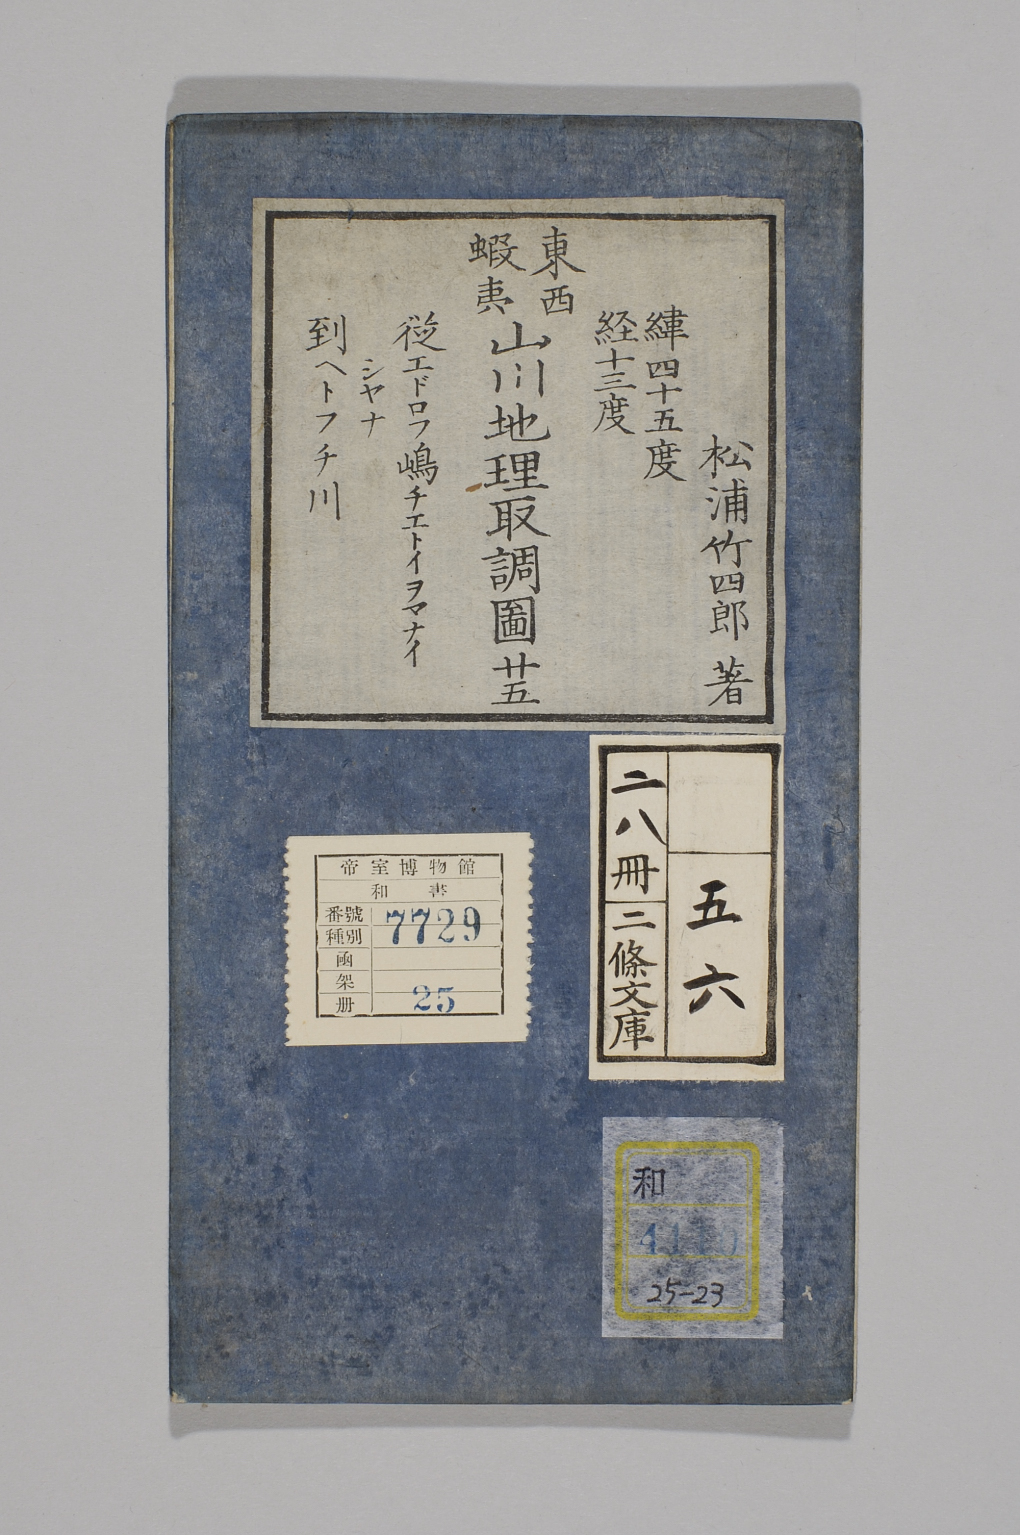 松浦竹四郎 著
緯四十五度
経十三度
東西
蝦夷
山川地理取調圖 廿五
従エドロフ嶋チエトイヲマナイ
シヤナ
到ヘトフチ川
五六
二八冊
二條文庫
帝室博物館
和書
番號 7729
種別
函
架
册 25
和
25-23